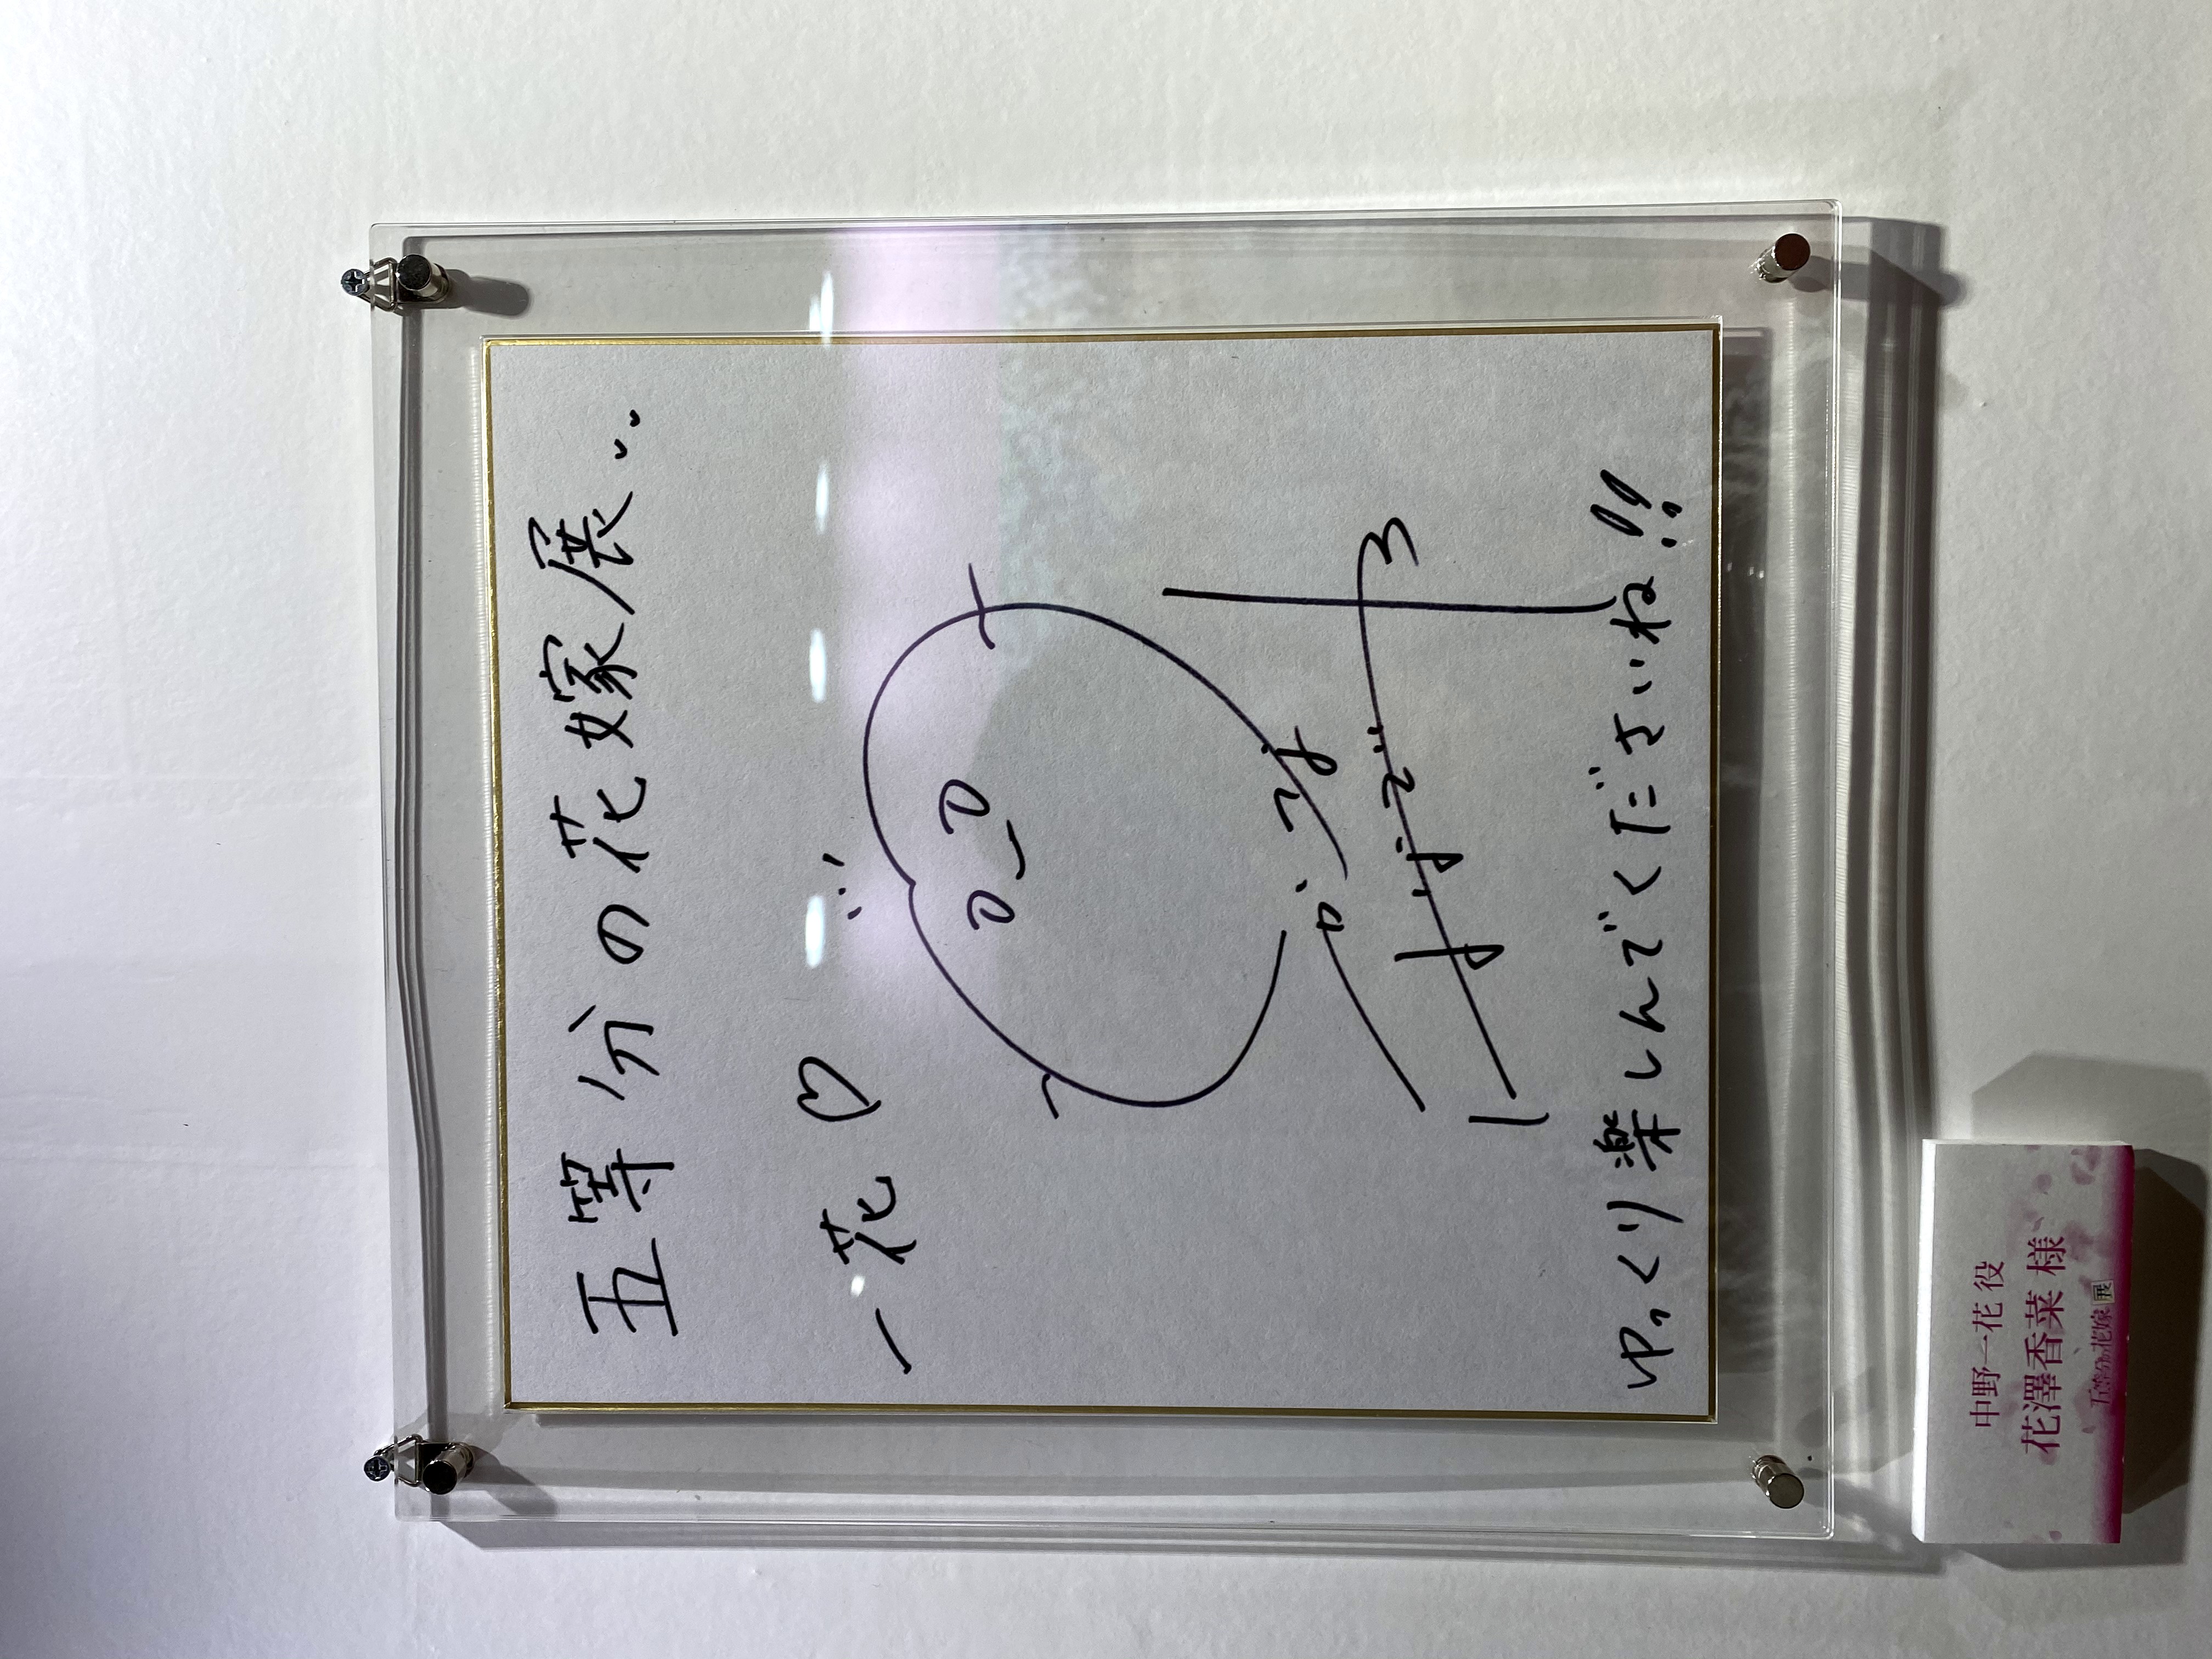 五等分の花嫁展..
一花♡
ゆっくり楽しんでくださいね!!
中野一花 役
花澤香菜 様
五等分の花嫁 展